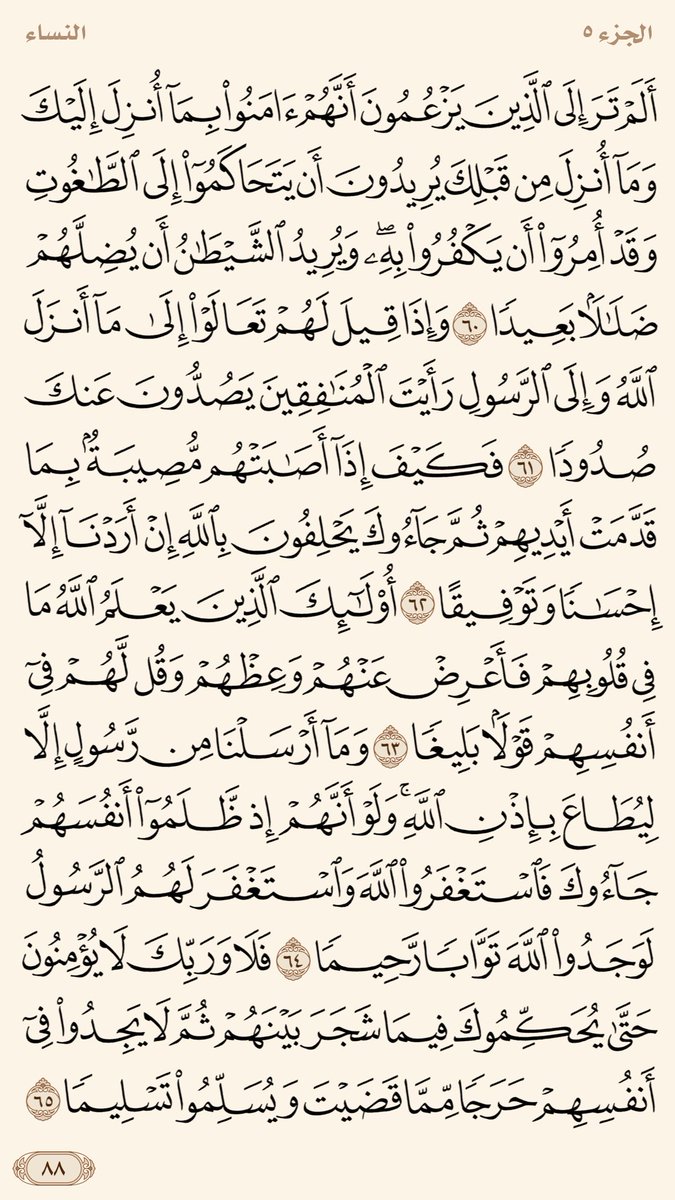 النساء الجزء ٥
أَلَمْ تَرَ إِلَى ٱلَّذِينَ يَزْعُمُونَ أَنَّهُمْ ءَامَنُوا۟ بِمَآ أُنزِلَ إِلَيْكَ
وَمَآ أُنزِلَ مِن قَبْلِكَ يُرِيدُونَ أَن يَتَحَاكَمُوٓا۟ إِلَى ٱلطَّـٰغُوتِ
وَقَدْ أُمِرُوٓا۟ أَن يَكْفُرُوا۟ بِهِۦۖ وَيُرِيدُ ٱلشَّيْطَـٰنُ أَن يُضِلَّهُمْ
ضَلَـٰلًۢا بَعِيدًا ٦٠ وَإِذَا قِيلَ لَهُمْ تَعَالَوْا۟ إِلَىٰ مَآ أَنزَلَ
ٱللَّهُ وَإِلَى ٱلرَّسُولِ رَأَيْتَ ٱلْمُنَـٰفِقِينَ يَصُدُّونَ عَنكَ
صُدُودًا ٦١ فَكَيْفَ إِذَآ أَصَـٰبَتْهُم مُّصِيبَةٌۢ بِمَا
قَدَّمَتْ أَيْدِيهِمْ ثُمَّ جَآءُوكَ يَحْلِفُونَ بِٱللَّهِ إِنْ أَرَدْنَآ إِلَّآ
إِحْسَـٰنًا وَتَوْفِيقًا ٦٢ أُو۟لَـٰٓئِكَ ٱلَّذِينَ يَعْلَمُ ٱللَّهُ مَا
فِى قُلُوبِهِمْ فَأَعْرِضْ عَنْهُمْ وَعِظْهُمْ وَقُل لَّهُمْ فِىٓ
أَنفُسِهِمْ قَوْلًۢا بَلِيغًا ٦٣ وَمَآ أَرْسَلْنَا مِن رَّسُولٍ إِلَّا
لِيُطَاعَ بِإِذْنِ ٱللَّهِۚ وَلَوْ أَنَّهُمْ إِذ ظَّلَمُوٓا۟ أَنفُسَهُمْ
جَآءُوكَ فَٱسْتَغْفَرُوا۟ ٱللَّهَ وَٱسْتَغْفَرَ لَهُمُ ٱلرَّسُولُ
لَوَجَدُوا۟ ٱللَّهَ تَوَّابًا رَّحِيمًا ٦٤ فَلَا وَرَبِّكَ لَا يُؤْمِنُونَ
حَتَّىٰ يُحَكِّمُوكَ فِيمَا شَجَرَ بَيْنَهُمْ ثُمَّ لَا يَجِدُوا۟ فِىٓ
أَنفُسِهِمْ حَرَجًا مِّمَّا قَضَيْتَ وَيُسَلِّمُوا۟ تَسْلِيمًا ٦٥
٨٨